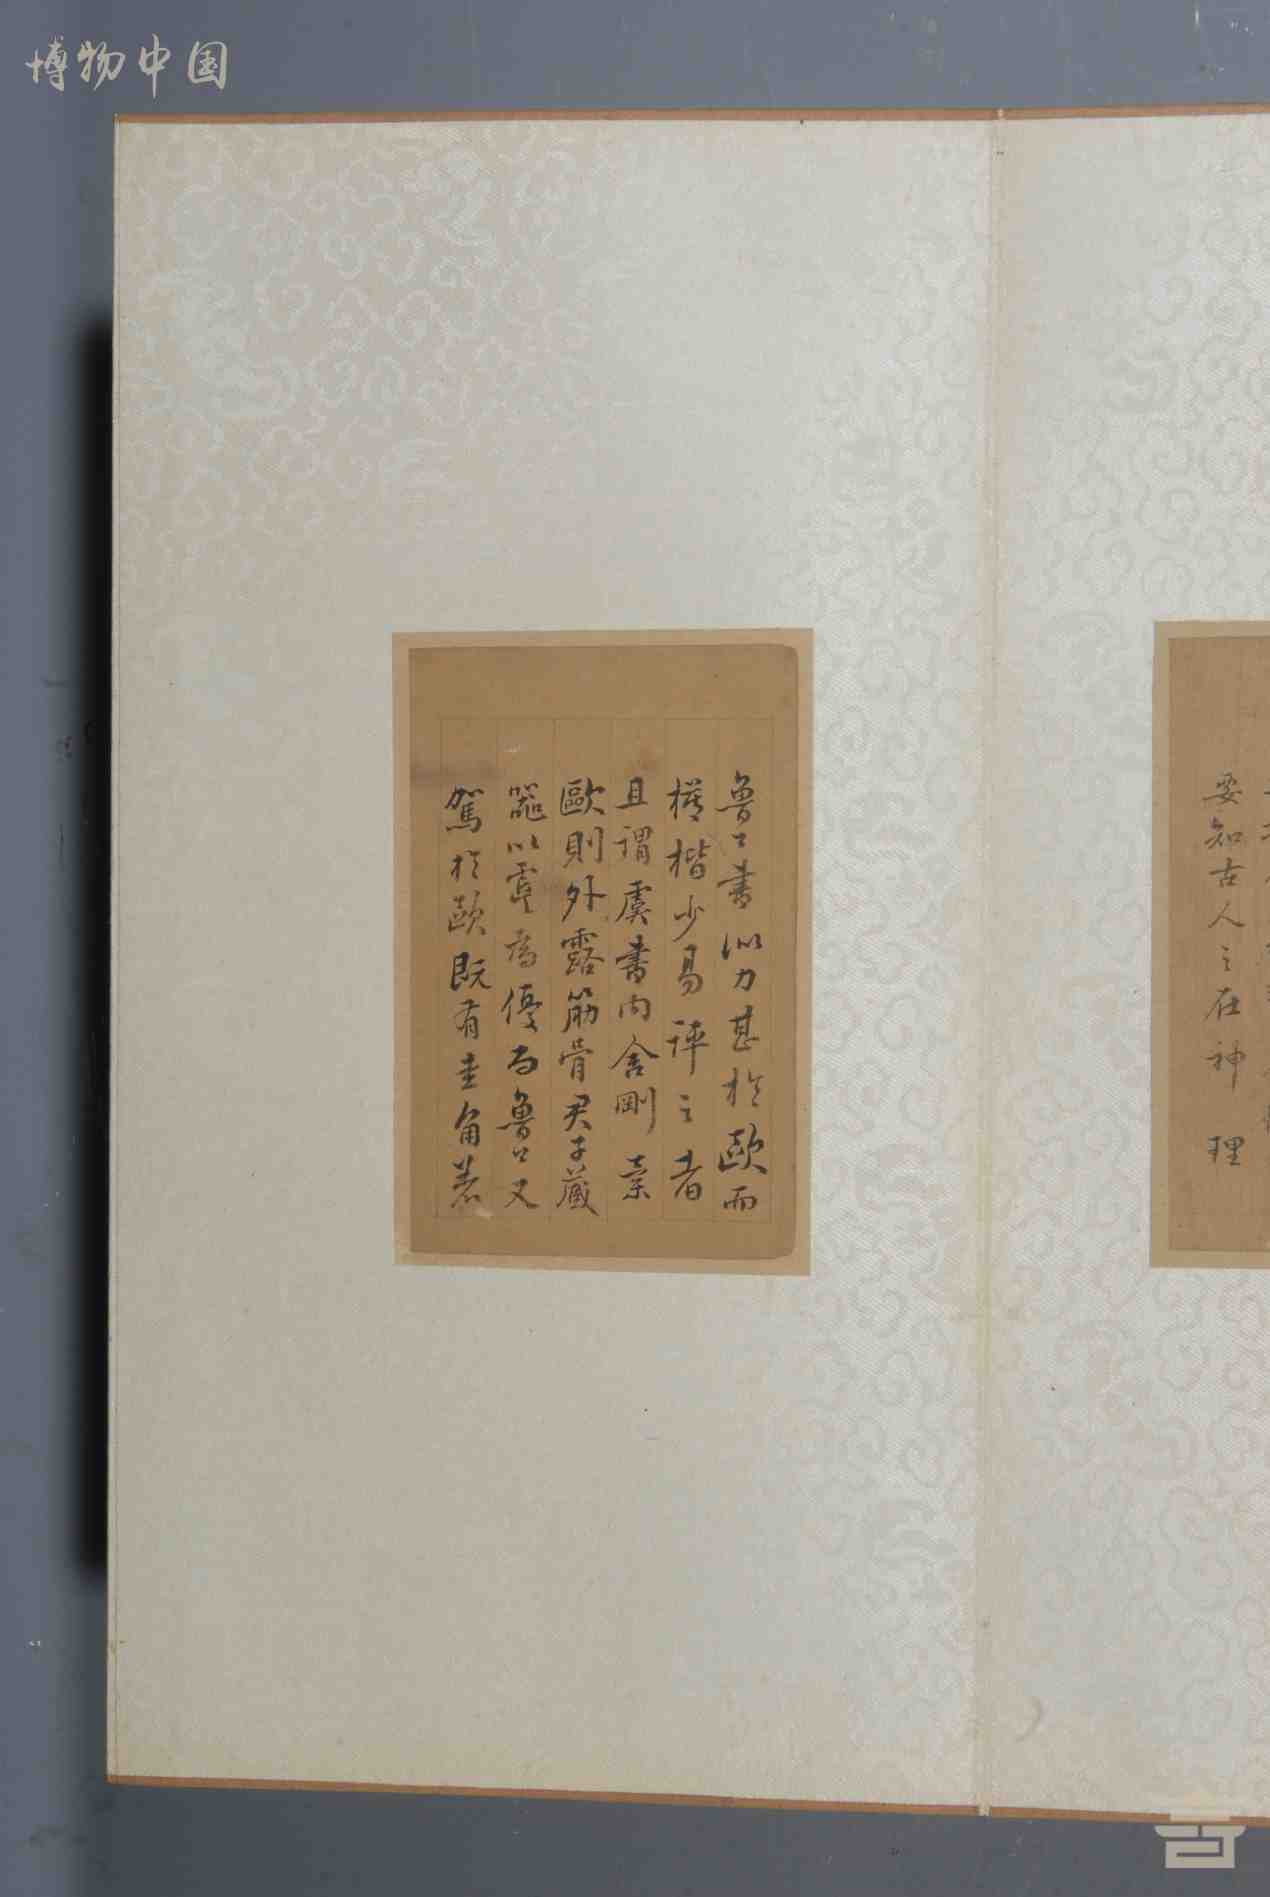 博物中国
要知古人之在神理
魯公書似力甚於歐而
模楷少易評之者
且謂虞書內含剛柔
歐則外露筋骨君子藏
器以虞為優而魯公又
駕於歐既有圭角